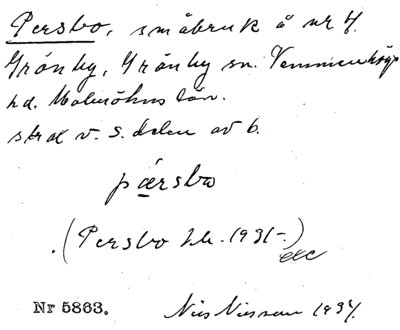 Persbo, småbruk å nr 4
Grönby, Grönby sn. Vemmenhögs
hd. Malmöhus län.
strax v. s. delen av b.
pärsbo
(Persbo Jb. 1931-)
Nr 5863. Nils Nilsson 1937.